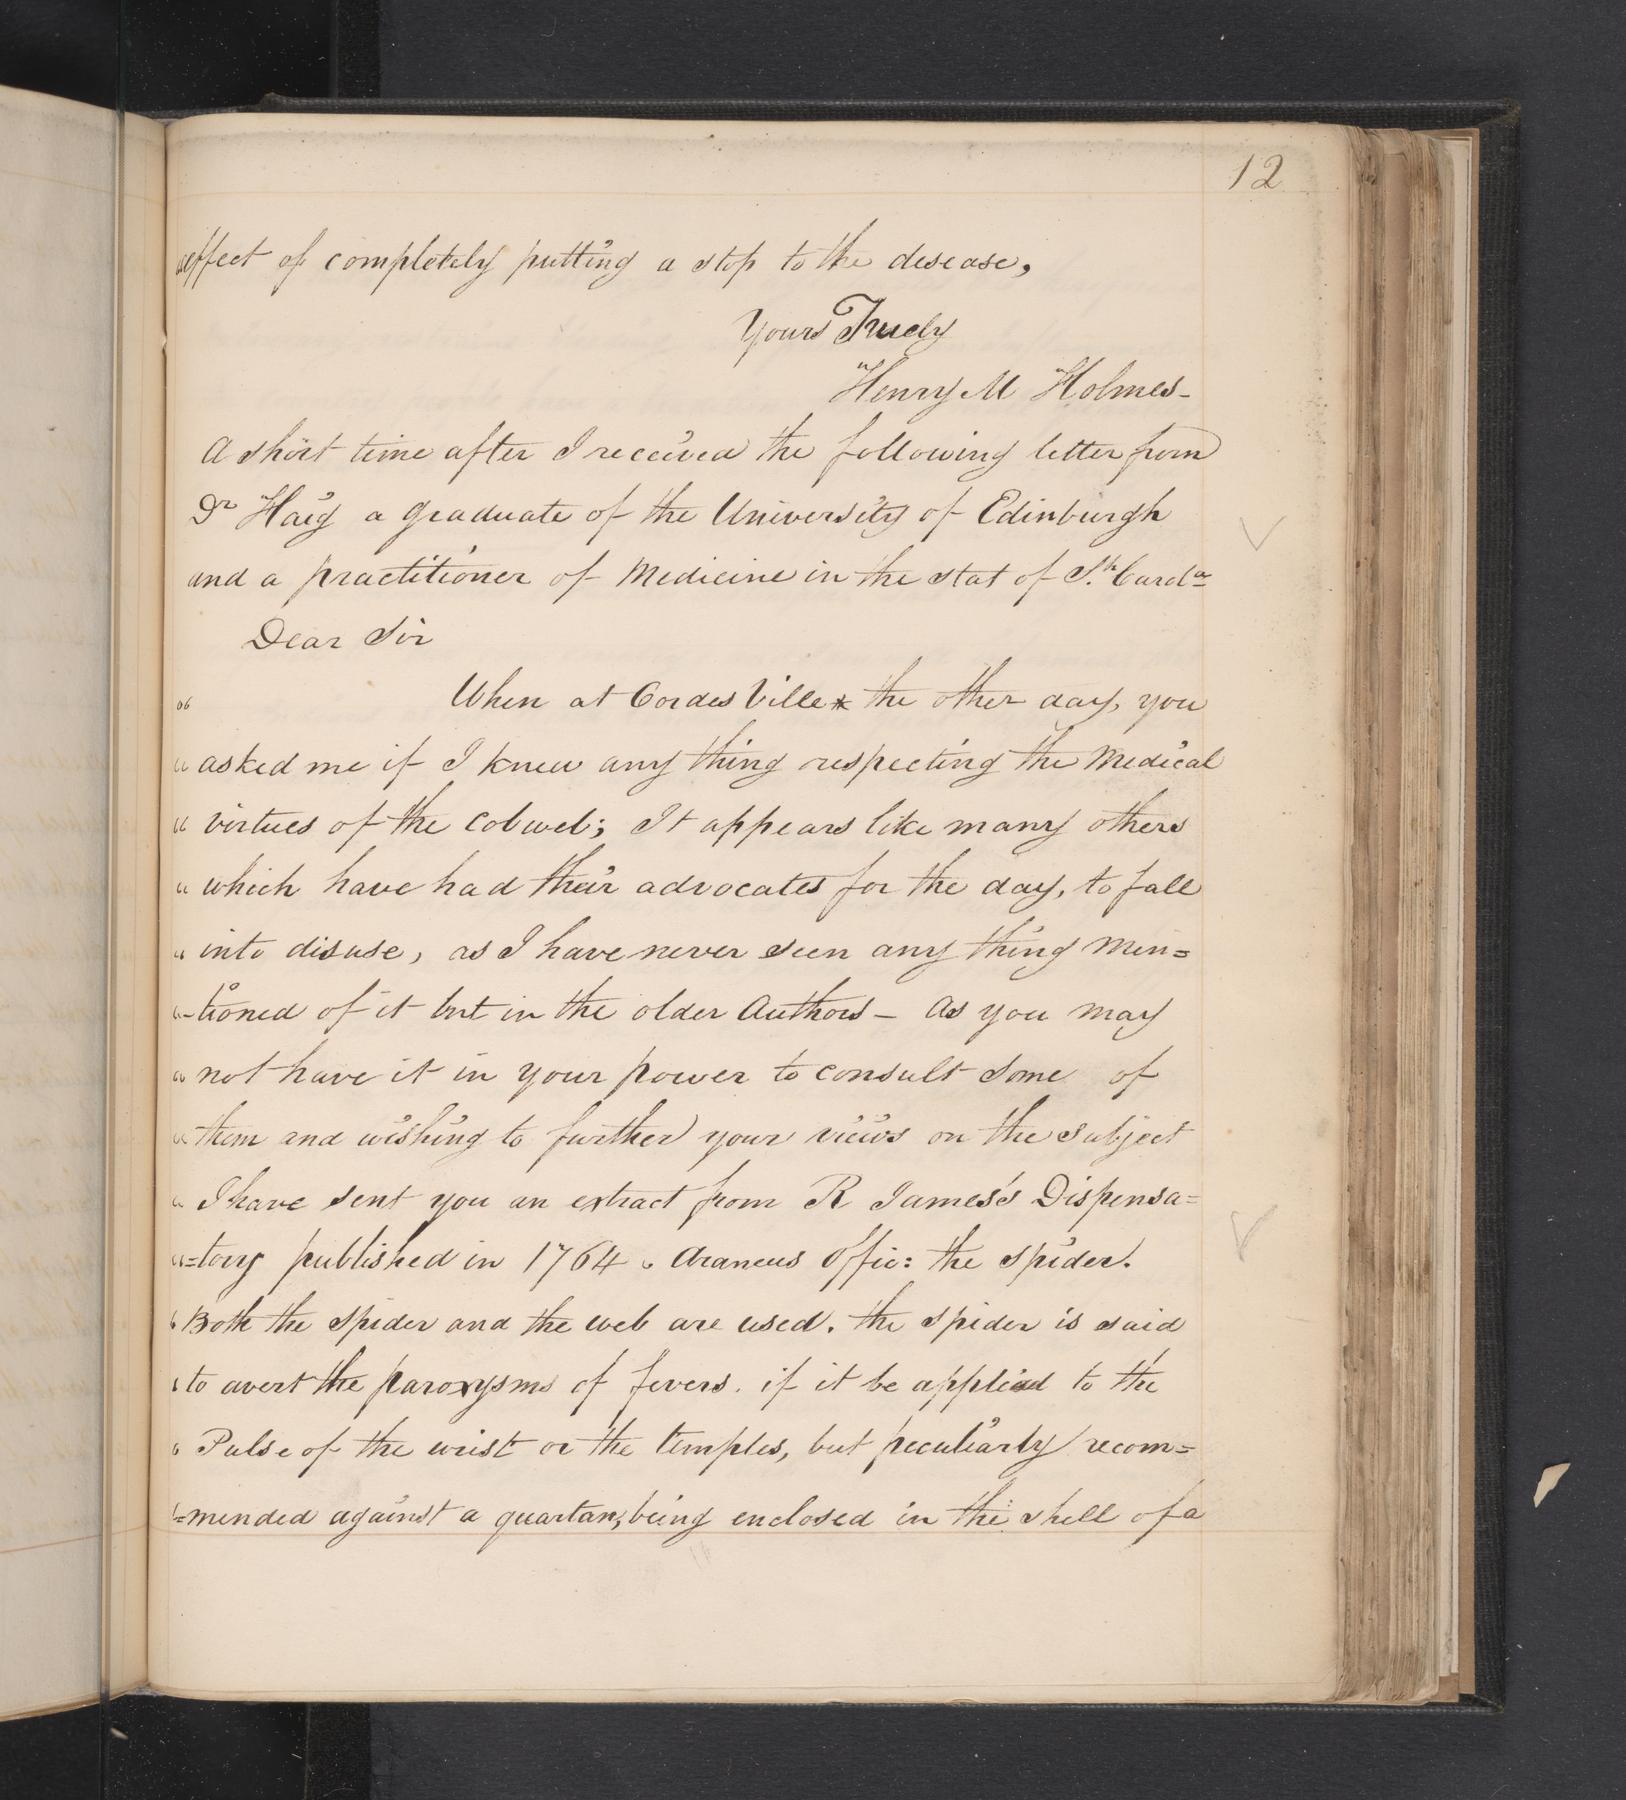 12
"effect of completely putting a stop to the desease,
Yours Truely
Henry M Holmes-
A short time after I received the following letter from
Dr Haig a graduate of the University of Edinburgh
and a practitioner of Medicine in the stat of Sth Carola
Dear Sir
" When at Cordes Ville * the other day, you
" asked me if I knew any thing respecting the Medical
" virtues of the cobweb; It appears like many others
" which have had their advocates for the day, to fall
" into disuse, as I have never seen any thing men=
"-tioned of it but in the older Authors - As you may
" not have it in your power to consult some of
" them and wishing to further your views on the subject
" I have sent you an extract from R James's Dispensa=
"=tory published in 1764 " Araneus Offic: the spider.
" Both the spider and the web are used. the spider is said
" to avert the paroxysms of fevers. if it be applied to the
" Pulse of the wrist or the temples, but peculiarly recom=
"=mended against a quartan, being enclosed in the shell of a